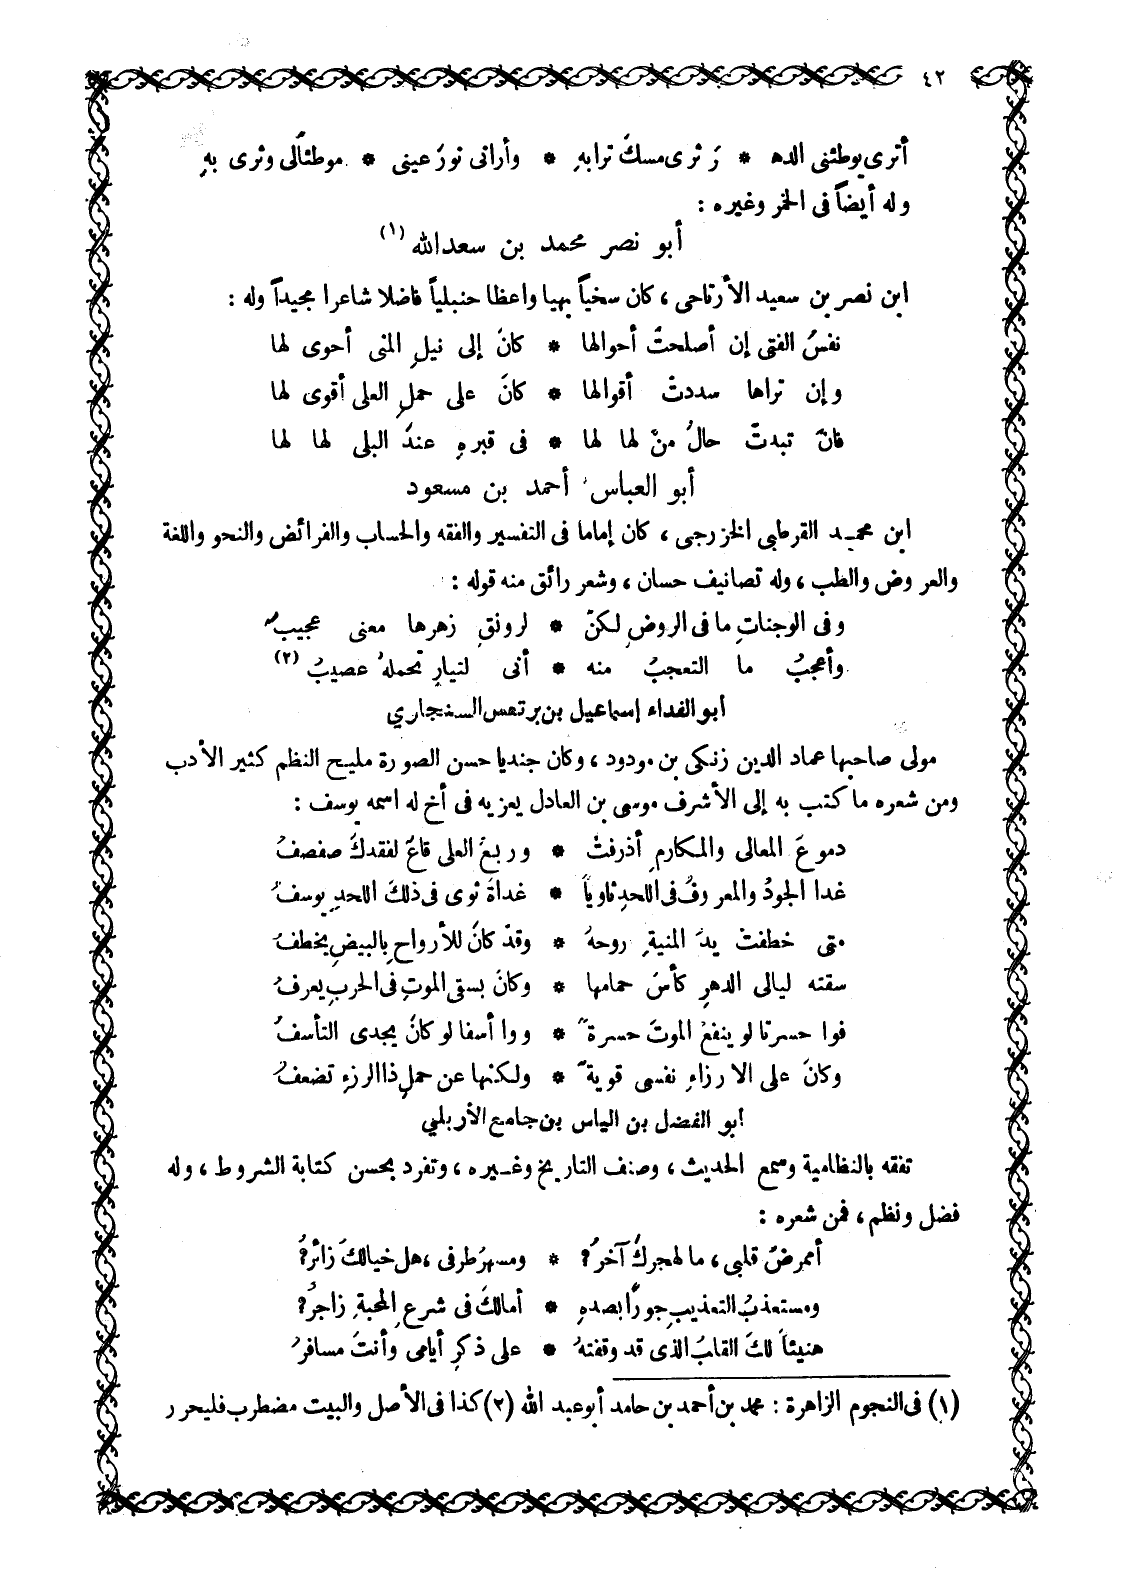 ٤٢
أترى يوطئنى الده * رَ ثرى مسكَ ترابهِ * وأرانى نورَ عينى * موطئاً لى وثرى بهِ
وله أيضاً فى الخمر وغيره :
أبو نصر محمد بن سعد الله (١)
ابن نصر بن سعيد الأرتاحى ، كان سخياً بهيا واعظا حنبلياً فاضلا شاعرا مجيداً وله :
نفسُ الفتى إن أصلحتْ أحوالها * كانَ إلى نيلِ المنى أحوى لها
وإن تراها سددتْ أقوالها * كانَ على حملِ العلى أقوى لها
فانْ تبدتْ حالُ منْ لها لها * فى قبرهِ عندَ البلى لها لها
أبو العباس أحمد بن مسعود
ابن محمد القرطبى الخزرجى ، كان إماما فى التفسير والفقه والحساب والفرائض والنحو واللغة
والعروض والطب ، وله تصانيف حسان ، وشعر رائق منه قوله :
وفى الوجناتِ ما فى الروضِ لكنْ * لرونقِ زهرها معنى عجيبُ
وأعجبُ ما التعجبُ منه * أنى لتيارٍ تحملهُ عصيبُ (٢)
أبو الفداء إسماعيل بن برتعس السنجاري
مولى صاحبها عماد الدين زنكى بن مودود ، وكان جنديا حسن الصورة مليح النظم كثير الأدب
ومن شعره ما كتب به إلى الأشرف موسى بن العادل يعزيه فى أخ له اسمه يوسف :
دموعَ المعالى والمكارمِ أذرفتْ * وربعُ العلى قاعٌ لفقدكَ صفصفُ
غدا الجودُ والمعروفُ فى اللحدِ ثاوياً * غداةَ ثوى فى ذلكَ اللحدِ يوسفُ
متى خطفتْ يدَ المنيةِ روحهُ * وقدْ كانَ للأرواحِ بالبيضِ يخطفُ
سقته ليالى الدهرِ كأسَ حمامها * وكانَ بسقى الموتِ فى الحربِ يعرفُ
فوا حسرتا لو ينفعُ الموتَ حسرةً * ووا أسفا لو كانَ يجدى التأسفُ
وكانَ على الارزاءِ نفسى قويةً * ولكنها عن حملِ ذا الرزءِ تضعفُ
أبو الفضل بن الياس بن جامع الأربلي
تفقه بالنظامية وسمع الحديث ، وصنف التاريخ وغيره ، وتفرد بحسن كتابة الشروط ، وله
فضل ونظم ، فمن شعره :
أممرضُ قلبى ، ما لهجركَ آخرُ؟ * ومسهرَ طرفى ، هل خيالكَ زائرُ؟
ومستعذبُ التعذيبِ جوراً بصدهِ * أمالكَ فى شرعِ المحبةِ زاجرُ؟
هنيئاً لكَ القلبُ الذى قد وقفتهُ * على ذكرِ أيامى وأنتَ مسافرُ
(١) فى النجوم الزاهرة : محمد بن أحمد بن حامد أبو عبد الله (٢) كذا فى الأصل والبيت مضطرب فليحرر